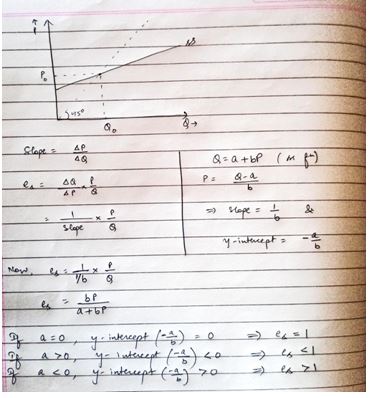 ↑
P
S
P₀
45°
Q₀
Q→
Slope = ΔP/ΔQ
eₛ = ΔQ/ΔP × P/Q
= 1/Slope × P/Q
Q = a + bP
P = (Q-a)/b
⇒ slope = 1/b &
y-intercept = -a/b
Now, eₛ = 1/(1/b) × P/Q
eₛ = bP/(a+bP)
If a=0, y-intercept (-a/b) = 0 ⇒ eₛ = 1
If a>0, y-intercept (-a/b) <0 ⇒ eₛ <1
If a<0, y-intercept (-a/b) >0 ⇒ eₛ >1